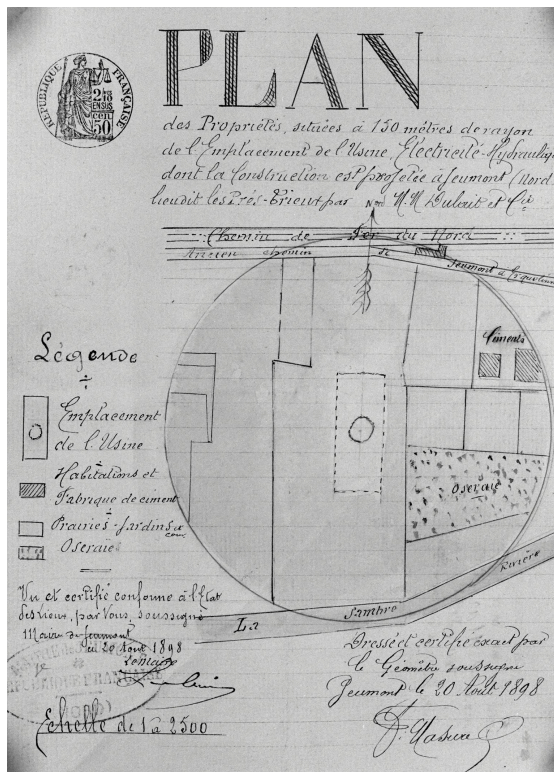 PLAN
RÉPUBLIQUE FRANÇAISE
2/10
EN SUS
50
des Propriétés, situées à 150 mètres de rayon
de l'Emplacement de l'Usine, Électricité-Hydraulique
dont la Construction est projetée à Jeumont (Nord
lieudit les Prés-Brieux par M.M Dulait et Cie
Nord
Chemin de Fer du Nord
Ancien chemin de Jeumont à
N
Ciments
Légende
Emplacement
de l'Usine
Habitations et
Fabrique de ciment
Prairies-Jardins &
cour
Oseraie
Oseraie
Rivière
La Sambre
Vu et certifié conforme à l'État
des lieux, par Nous, soussigné
Maire de Jeumont
le 20 Août 1898
Lemaire
RÉPUBLIQUE FRANÇAISE
Dressé et certifié exact par
le Géomètre soussigné
Jeumont le 20 Août 1898
Echelle de 1 à 2500